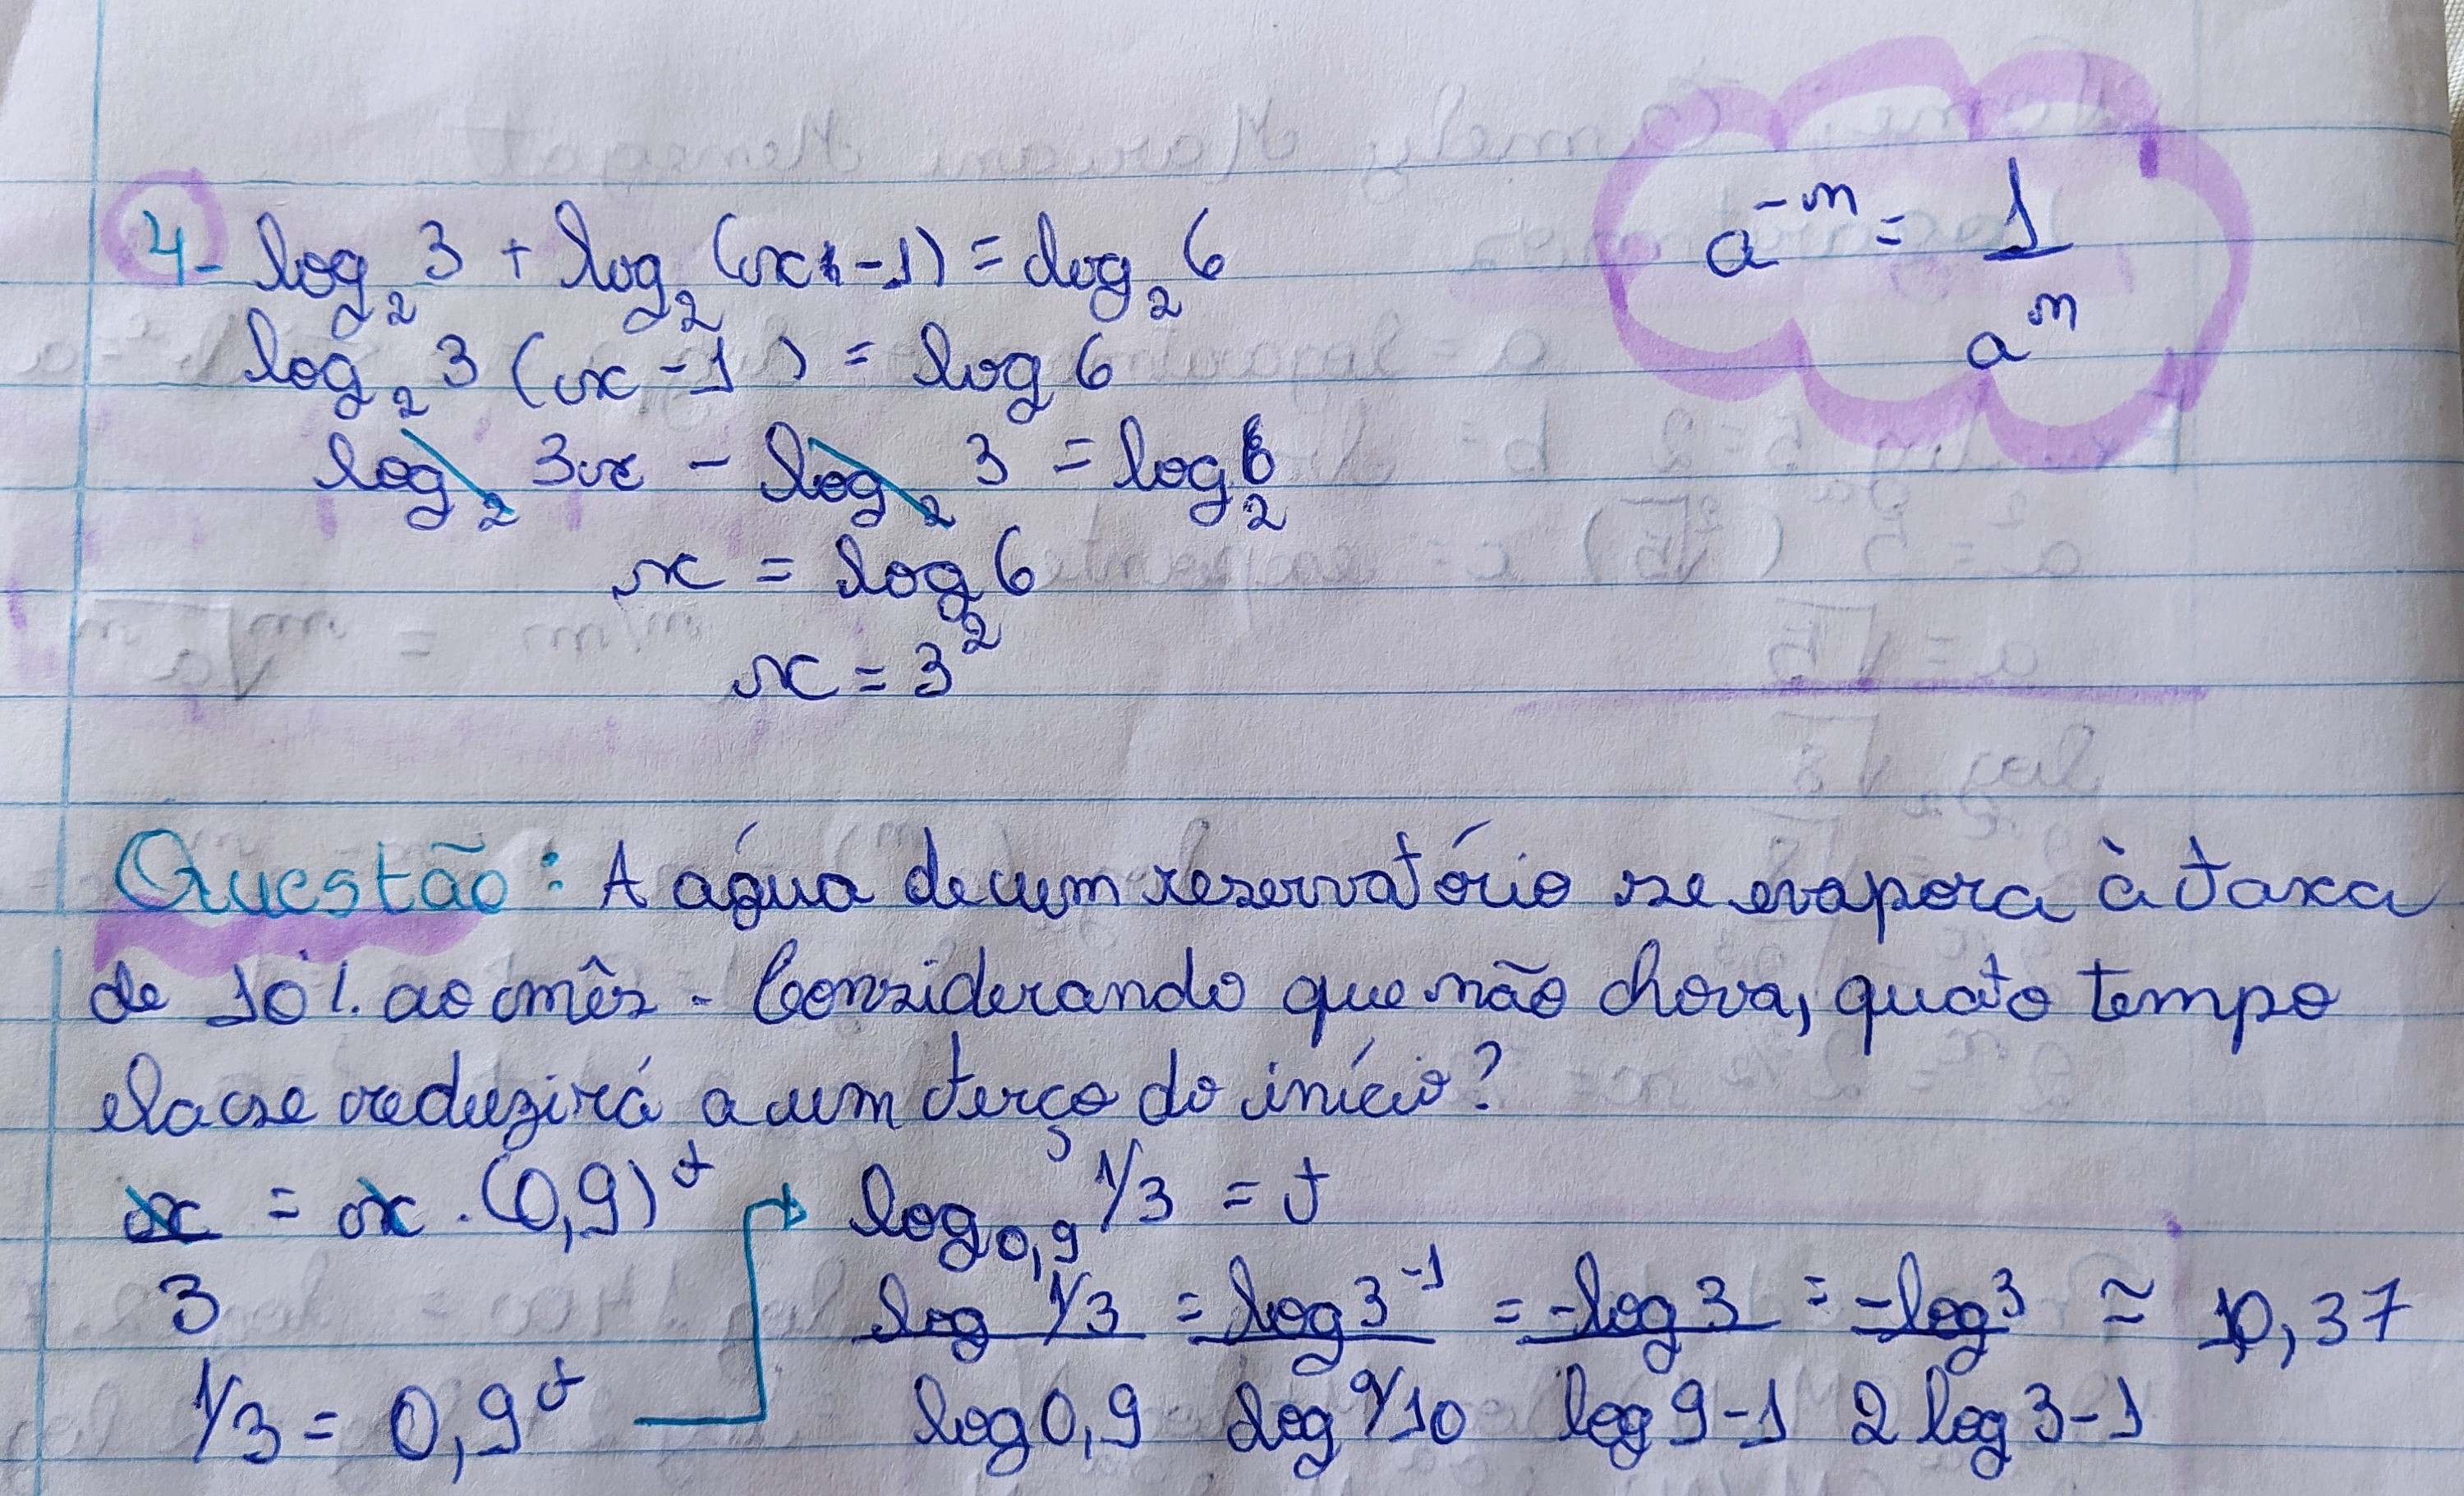 4- log₂ 3 + log₂ (x-1) = log₂ 6
a⁻ᵐ = 1/aᵐ
log₂ 3 (x-1) = log 6
log₂ 3x - log₂ 3 = log₂ 6
x = log₂ 6
x = 3²
Questão: A água de um reservatório se evapora à taxa
de 10% ao mês. Considerando que não chova, quato tempo
ela se reduzirá a um terço do início?
x/3 = x . (0,9)ᵗ
log₀,₉ 1/3 = t
log 1/3 / log 0,9 = log 3⁻¹ / log 9/10 = -log 3 / log 9-1 = -log 3 / 2 log 3-1 ≈ 10,37
1/3 = 0,9ᵗ